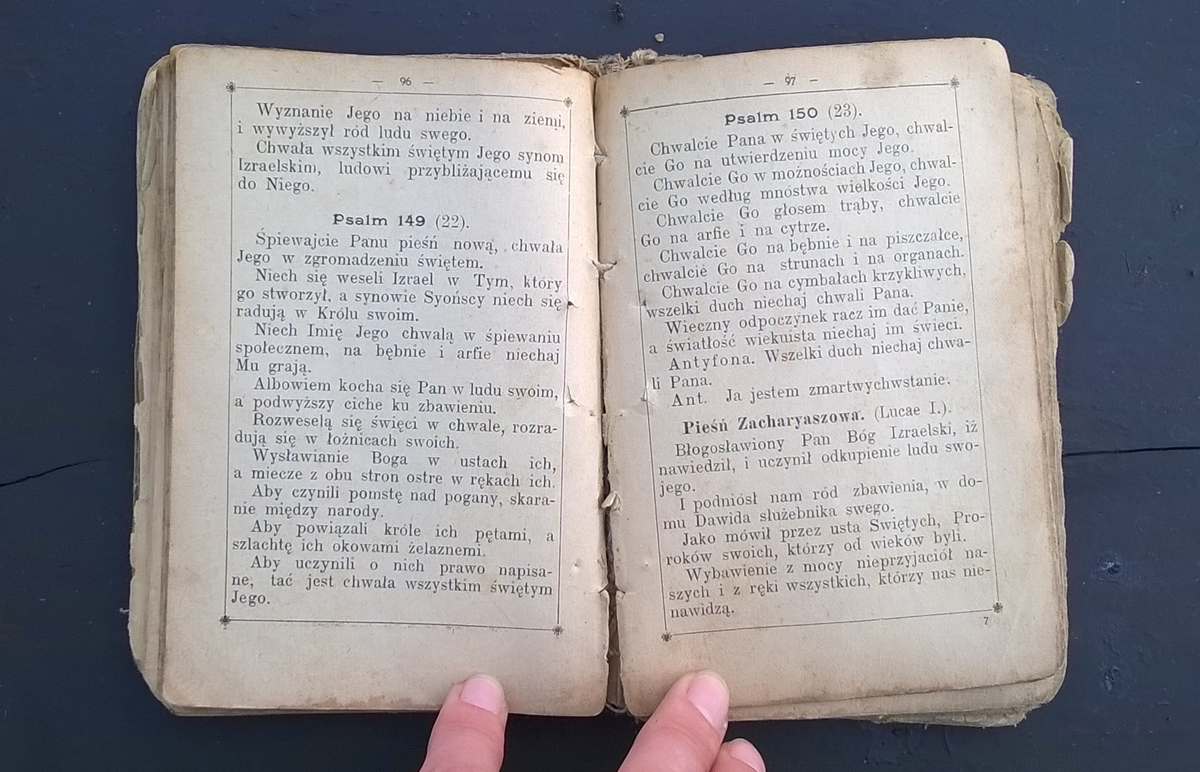 — 96 —
Wyznanie Jego na niebie i na ziemi,
i wywyższył ród ludu swego.
Chwała wszystkim świętym Jego synom
Izraelskim, ludowi przybliżającemu się
do Niego.
Psalm 149 (22).
Śpiewajcie Panu pieśń nową, chwała
Jego w zgromadzeniu świętem.
Niech się weseli Izrael w Tym, który
go stworzył, a synowie Syońscy niech się
radują w Królu swoim.
Niech Imię Jego chwalą w śpiewaniu
społecznem, na bębnie i arfie niechaj
Mu grają.
Albowiem kocha się Pan w ludu swoim,
a podwyższy ciche ku zbawieniu.
Rozweselą się święci w chwale, rozra-
dują się w łożnicach swoich.
Wysławianie Boga w ustach ich,
a miecze z obu stron ostre w rękach ich.
Aby czynili pomstę nad pogany, skara-
nie między narody.
Aby powiązali króle ich pętami, a
szlachtę ich okowami żelaznemi.
Aby uczynili o nich prawo napisa-
ne, tać jest chwała wszystkim świętym
Jego.
— 97 —
Psalm 150 (23).
Chwalcie Pana w świętych Jego, chwal-
cie Go na utwierdzeniu mocy Jego.
Chwalcie Go w możnościach Jego, chwal-
cie Go według mnóstwa wielkości Jego.
Chwalcie Go głosem trąby, chwalcie
Go na arfie i na cytrze.
Chwalcie Go na bębnie i na piszczałce,
chwalcie Go na strunach i na organach.
Chwalcie Go na cymbałach krzykliwych,
wszelki duch niechaj chwali Pana.
Wieczny odpoczynek racz im dać Panie,
a światłość wiekuista niechaj im świeci.
Antyfona. Wszelki duch niechaj chwa-
li Pana.
Ant. Ja jestem zmartwychwstanie.
Pieśń Zacharyaszowa. (Lucae I.).
Błogosławiony Pan Bóg Izraelski, iż
nawiedził, i uczynił odkupienie ludu swo-
jego.
I podniósł nam ród zbawienia, w do-
mu Dawida służebnika swego.
Jako mówił przez usta Swiętych, Pro-
roków swoich, którzy od wieków byli.
Wybawienie z mocy nieprzyjaciół na-
szych i z ręki wszystkich, którzy nas nie-
nawidzą.
7